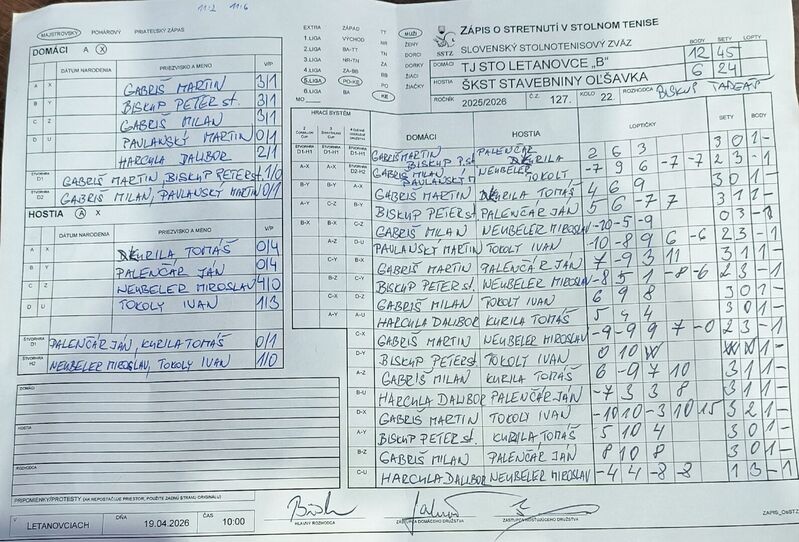 11:2 11:6
MAJSTROVSKÝ POHÁROVÝ PRIATEĽSKÝ ZÁPAS
EXTRA ZÁPAD TY MUŽI
1.LIGA VÝCHOD RK ŽENY
2.LIGA BA-TT DORCI
3.LIGA NR-TN DORKY
4.LIGA ZA-BB ŽIACI
5.LIGA PO-KE ŽIAČKY
6.LIGA BA KE
MO
SSTZ
ZÁPIS O STRETNUTÍ V STOLNOM TENISE
SLOVENSKÝ STOLNOTENISOVÝ ZVÄZ BODY SETY LOPTY
DOMÁCI TJ STO LETANOVCE „B" 12 45
HOSTIA ŠKST STAVEBNINY OĽŠAVKA 6 24
ROČNÍK 2025/2026 Č.Z. 127. KOLO 22. ROZHODCA BISKUP TADEÁŠ
DOMÁCI A X
DÁTUM NARODENIA PRIEZVISKO A MENO V/P
A X GABRIŠ MARTIN 3/1
B Y BISKUP PETER st. 3/1
C Z GABRIŠ MILAN 3/1
D U PAVLANSKÝ MARTIN 0/1
HARCULA DALIBOR 2/1
ŠTVORHRA D1 GABRIŠ MARTIN BISKUP PETER st. 1/0
ŠTVORHRA D2 GABRIŠ MILAN, PAVLANSKÝ MARTIN 0/1
HOSTIA A X
DÁTUM NARODENIA PRIEZVISKO A MENO V/P
A X KURILA TOMÁŠ 0/4
B Y PALENČÁR JÁN 0/4
C Z NEUBELER MIROSLAV 4/0
D U TOKOLY IVAN 1/3
ŠTVORHRA PALENČÁR JÁN, KURILA TOMÁŠ 0/1
ŠTVORHRA H2 NEUBELER MIROSLAV, TOKOLY IVAN 1/0
DOMÁCI
HOSTIA
ROZHODCA
PRIPOMIENKY/PROTESTY (AK NEPOSTAČUJE PRIESTOR, POUŽITE ZADNÚ STRANU ORIGINÁLU)
V LETANOVCIACH DŇA 19.04.2026 ČAS 10:00
HRACÍ SYSTÉM DOMÁCI HOSTIA LOPTIČKY SETY BODY
D1-H1 D1-H1 D1-H1 GABRIŠ MARTIN BISKUP P.st. PALENČÁR KURILA 2 6 3 3 0 1 -
A-X A-X D2-H2 GABRIŠ MILAN PAVLANSKÝ M NEUBELER TOKOLY -7 9 6 -7 -7 2 3 - 1
B-Y B-Y A-X GABRIŠ MARTIN KURILA TOMÁŠ 4 6 9 3 0 1 -
A-Y C-Z B-Y BISKUP PETER st. PALENČÁR JÁN 5 6 -7 7 3 1 1 -
B-X B-X C-Z GABRIŠ MILAN NEUBELER MIROSLAV -10 -5 -9 0 3 - 1
A-Z D-U PAVLANSKÝ MARTIN TOKOLY IVAN -10 -8 9 6 -6 2 3 - 1
C-Y B-X GABRIŠ MARTIN PALENČÁR JÁN 7 -9 3 11 3 1 1 -
B-Z C-Y BISKUP PETER st. NEUBELER MIROSLAV -8 5 1 -8 -6 2 3 - 1
C-X D-Z GABRIŠ MILAN TOKOLY IVAN 6 9 8 3 0 1 -
A-Y A-U HARCULA DALIBOR KURILA TOMÁŠ 5 4 4 3 0 1 -
C-X GABRIŠ MARTIN NEUBELER MIROSLAV -9 -9 9 7 -0 2 3 - 1
D-Y BISKUP PETER st. TOKOLY IVAN 0 10 W W 0 1 -
A-Z GABRIŠ MILAN KURILA TOMÁŠ 6 -9 7 10 3 1 1 -
B-U HARCULA DALIBOR PALENČÁR JÁN -7 3 3 8 3 1 1 -
D-X GABRIŠ MARTIN TOKOLY IVAN -10 10 -3 10 15 3 2 1 -
A-Y BISKUP PETER st. KURILA TOMÁŠ 5 10 4 3 0 1 -
B-Z GABRIŠ MILAN PALENČÁR JÁN 8 10 8 3 0 1 -
C-U HARCULA DALIBOR NEUBELER MIROSLAV -4 4 -8 -8 1 3 - 1
HLAVNÝ ROZHODCA ZÁSTUPCA DOMÁCEHO DRUŽSTVA ZÁSTUPCA HOSŤUJÚCEHO DRUŽSTVA